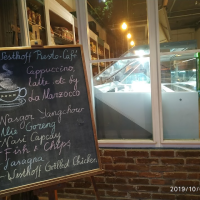 Westhoff Presto-Café
Cappuccino
Latte etc by
La Marzocco
Nasigor Yangchow
Mie Goreng
Nasi Capcay
Fish & Chips
Lasagna
Westhoff Grilled Chicken
2019/10/